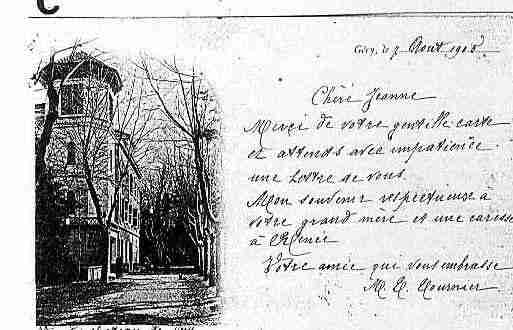 C
Géry, le 7 Août 1908
Chère Jeanne
Merci de votre gentille carte
et attends avec impatience
une lettre de vous.
Mon souvenir respectueuse à
votre grand mère et une caresse
à Renée
Votre amie qui vous embrasse
M. Mournier